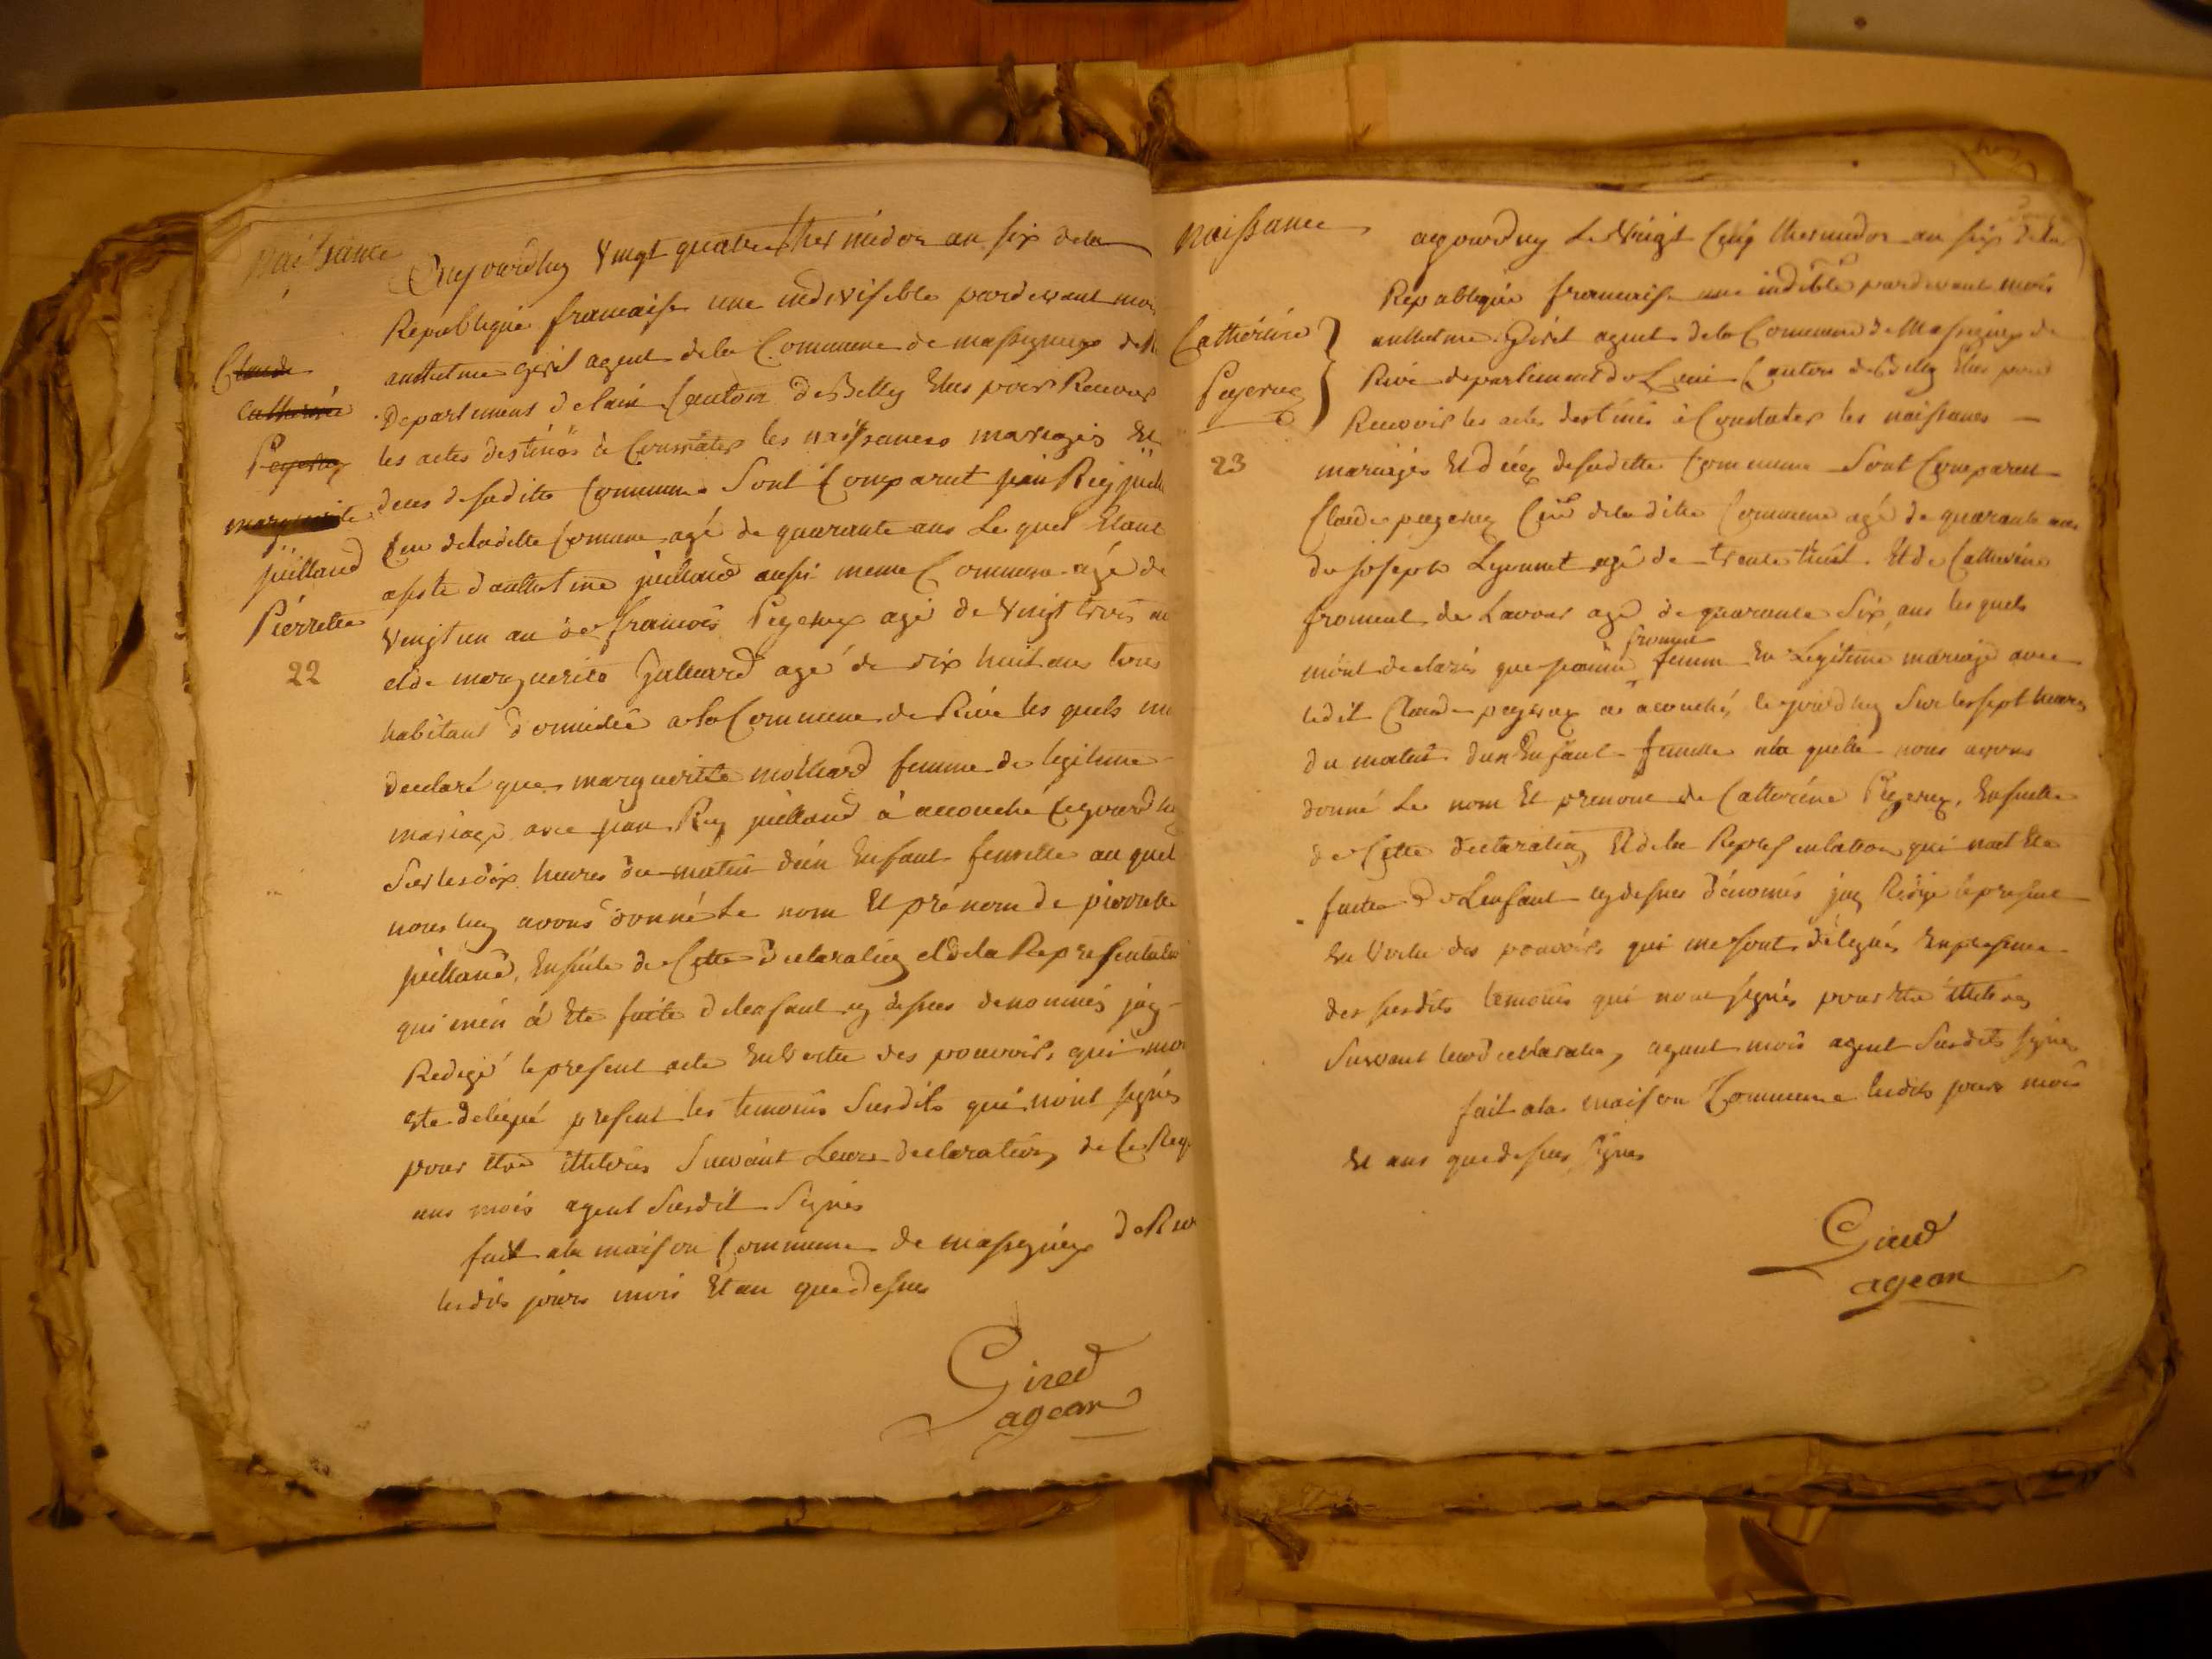 naissance
Claude
Catherine
Pegeruz
marguerite
juilland
Pierrette
22
aujourdhuy vingt quatre thermidor an six de la
Republique francaise une indivisible pardevant moi
anthelme girel agent de la Commune de massigneux de
departement delain Canton de Belley Elus pour Recevoir
les actes destinés à Constater les naissances mariages Et
deces desaditte Commune Sont Comparut jean Rey juilland
de laditte Commune agé de quarante ans Lequel Etant
asisté danthelme juilland aussi meme Commune agé de
vingt un an de francois Pegeruz agé de vingt trois an
et de marguerite Juilland agé de dix huit ans tous
habitant domicilié ala Commune de Rive les quels
declaré que marguerite molliard femme de legitime
mariage avec jean Rey juilland à accouché
Sur les dix heures du matin dun Enfant femelle au quel
nous luy avons donné Le nom Et prénom de pierrette
juilland, Ensuite de Cette declaration et de la Representation
qui men à Ete faite de lenfant cy dessus denommés jay
Redigé le present acte En Vertu des pouvoirs qui
Ete délégué present les temoins Susdits qui nont signés
pour Etre illiterés Suivant Leurs declaration de Ce Requis
moi agent Susdit Signés
fait ala maison Commune de massigneux de Riv
lesdits jours mois Et an que dessus
Girel
agean
naissance
Catherine
Pegeruz
23
aujourdhuy Le Vingt Cinq thermidor an six de la
Republique francaise une indible pardevant moi
anthelme Girel agent de la Commune de Massignieux de
Rive departement de Lain Canton de Belley Elus pour
Recevoir les actes destinés à Constater les naissances
mariages Et décez desaditte Commune Sont Comparu
Claude pegeruz de la ditte Commune agé de quarante ans
de joseph Leyonnet agé de trente huit Et de Catherine
froment de Lavour agé de quarante Six ans lesquels
mont declarés que jeanne froment femme En Legitime mariage avec
ledit Claude pegeruz a accouché, Sur les sept heures
du matin dun Enfant femelle ala quelle nous avons
donné Le nom Et prenom de Catherine Pegeruz, Ensuitte
de Cette declaration Et de la Representation qui ma Ete
faitte de Lenfant cy dessus dénomés jay Redigé le present
En Vertu des pouvoirs qui me sont délégués En presence
des susdits temoins qui nont signés pour Etre illiterés
Suivant leur declaration, ayant moi agent Susdits Signés
fait ala maison Commune lesdits jours mois
Et ans que dessus Signés
Girel
agean